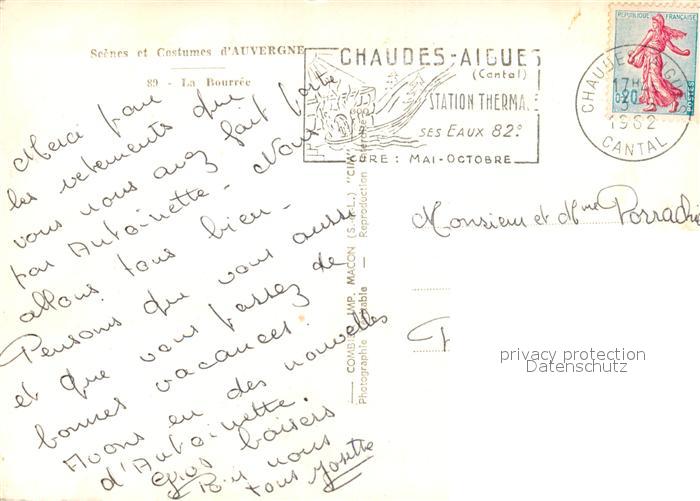 Scènes et Costumes d'AUVERGNE
89 - La Bourrée
Merci pour
les vetements que
vous nous avez fait porte
par Antoinette - Nous
allons tous bien -
Pensons que vous aussi
et que vous passez de
bonnes vacances.
Avons eu des nouvelles
d'Antoinette.
Gros baisers
nous
tous Josette
COMBIER IMP. MACON (S.-&-L.) "CIM
Photographie Reproduction
CHAUDES-AIGUES
(Cantal)
STATION THERMALE
SES EAUX 82°
CURE: MAI-OCTOBRE
REPUBLIQUE FRANÇAISE
0,20
POSTES
CHAUDES-AIGUES
17H
1962
CANTAL
Monsieur et Mme Porrachi
privacy protection
Datenschutz